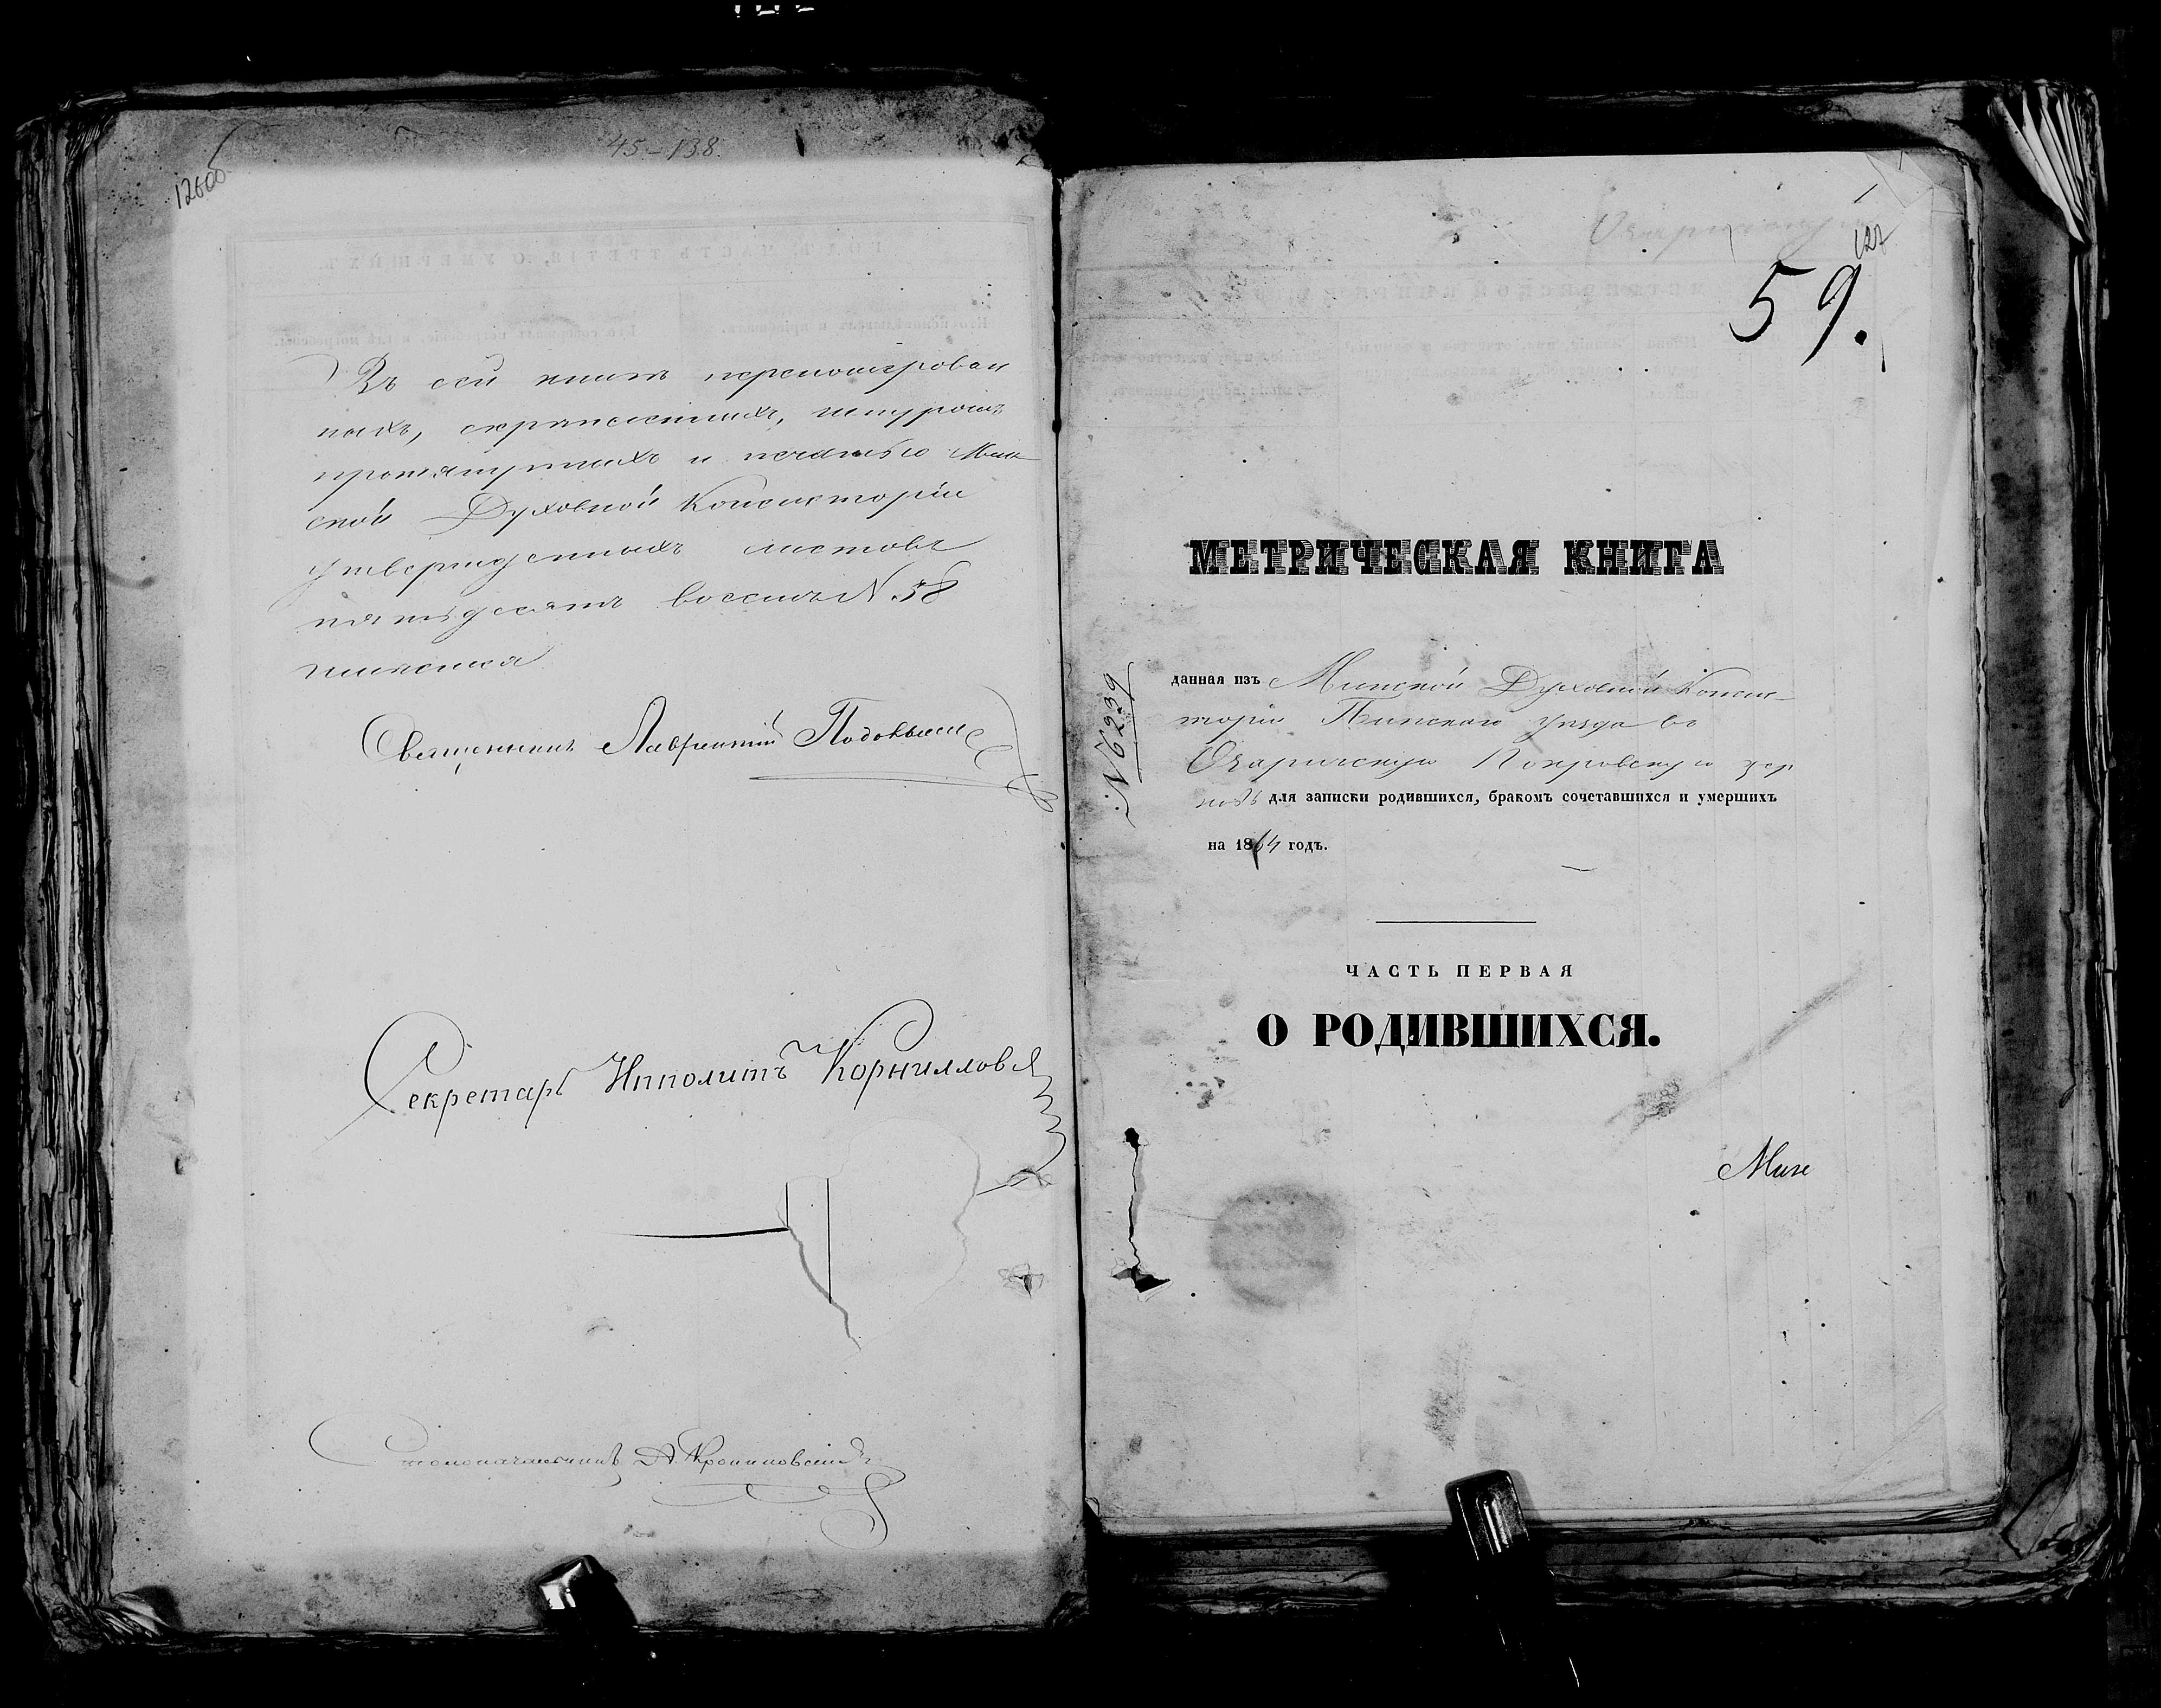 45-138.
126об
Въ сей книгѣ перенотирован
ныхъ, скрѣпленныхъ, шнуромъ
протянутыхъ и печатью Мин
ской Духовной Консисторіи
утвержденныхъ листовъ
пятьдесятъ восемь N. 58
Священникъ Лаврентій
Секретарь Ипполитъ Корниловъ
Столоначальникъ
127
59.
МЕТРИЧЕСКАЯ КНИГА
N 6239
данная изъ Минской Духовной Консис-
торіи Пинскаго уѣзда въ
Озаричскую Покровскую цер
ковь для записки родившихся, бракомъ сочетавшихся и умершихъ
на 1864 годъ.
ЧАСТЬ ПЕРВАЯ
О РОДИВШИХСЯ.